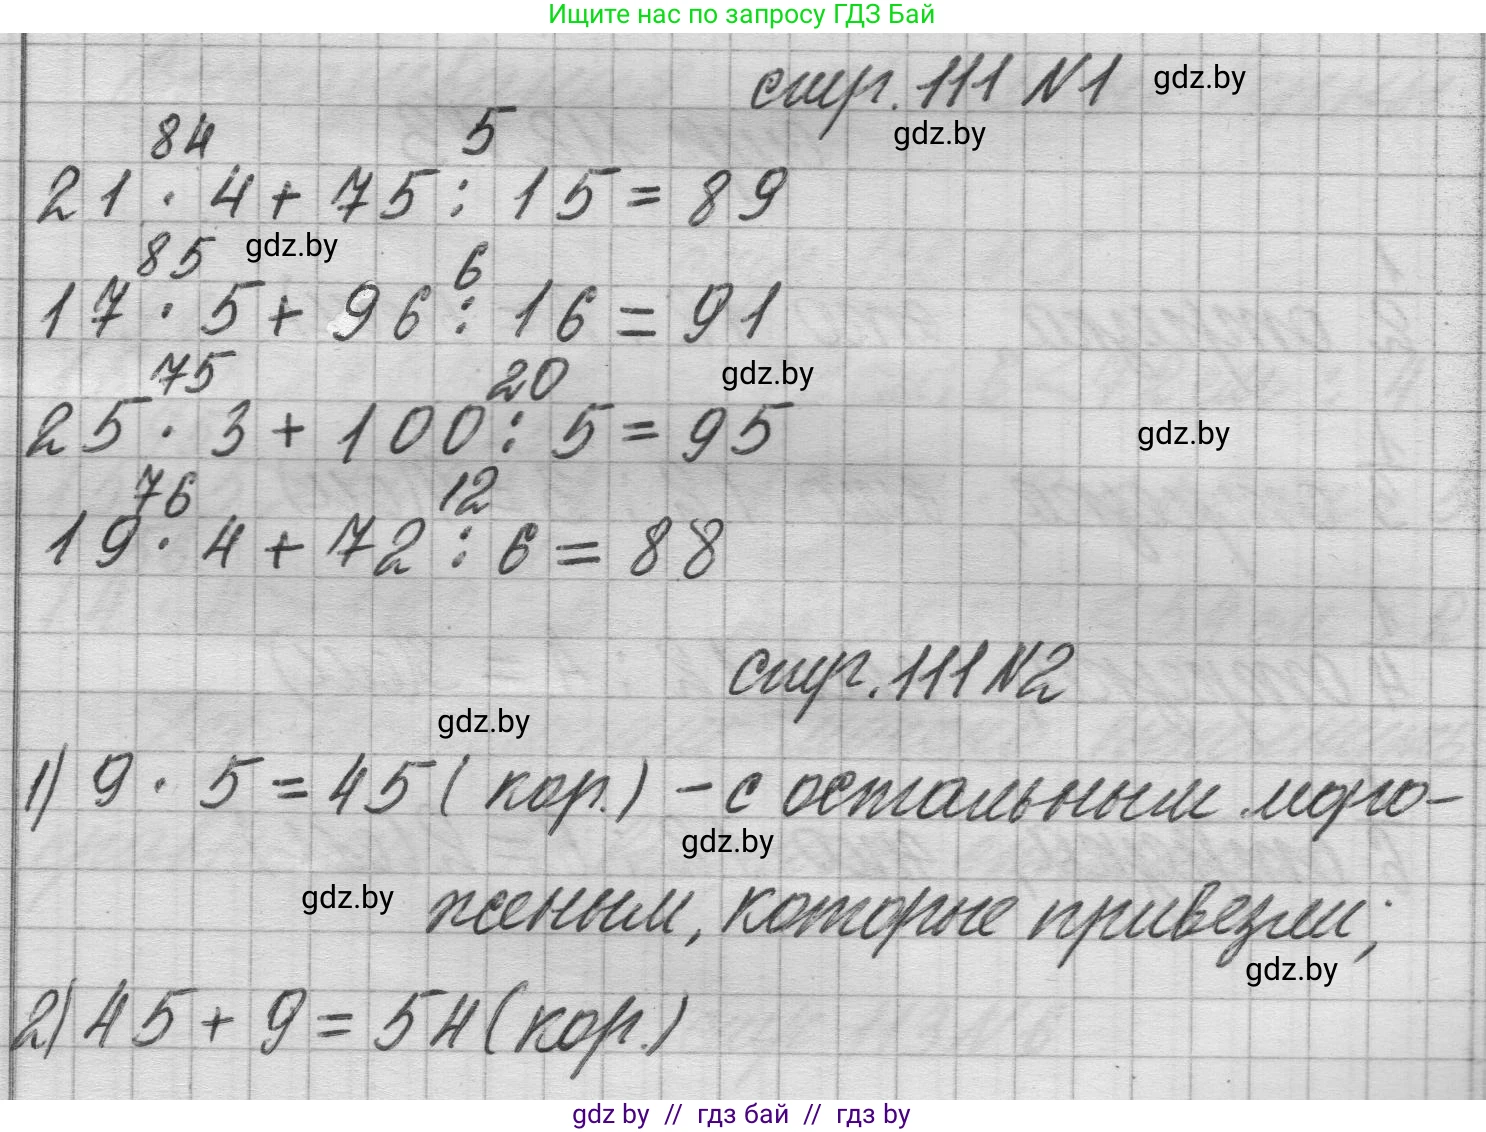 Ищите нас по запросу ГДЗ Бай
стр. 111 №1 gdz.by
gdz.by
84 5
21 · 4 + 75 : 15 = 89
85 gdz.by 6
17 · 5 + 96 : 16 = 91
75 20 gdz.by
25 · 3 + 100 : 5 = 95 gdz.by
76 12
19 · 4 + 72 : 6 = 88
стр. 111 №2
gdz.by
1) 9 · 5 = 45 (кор.) – с остальным моро-
gdz.by
gdz.by женым, которые привезли;
gdz.by
2) 45 + 9 = 54 (кор.)
gdz by // гдз бай // гдз by